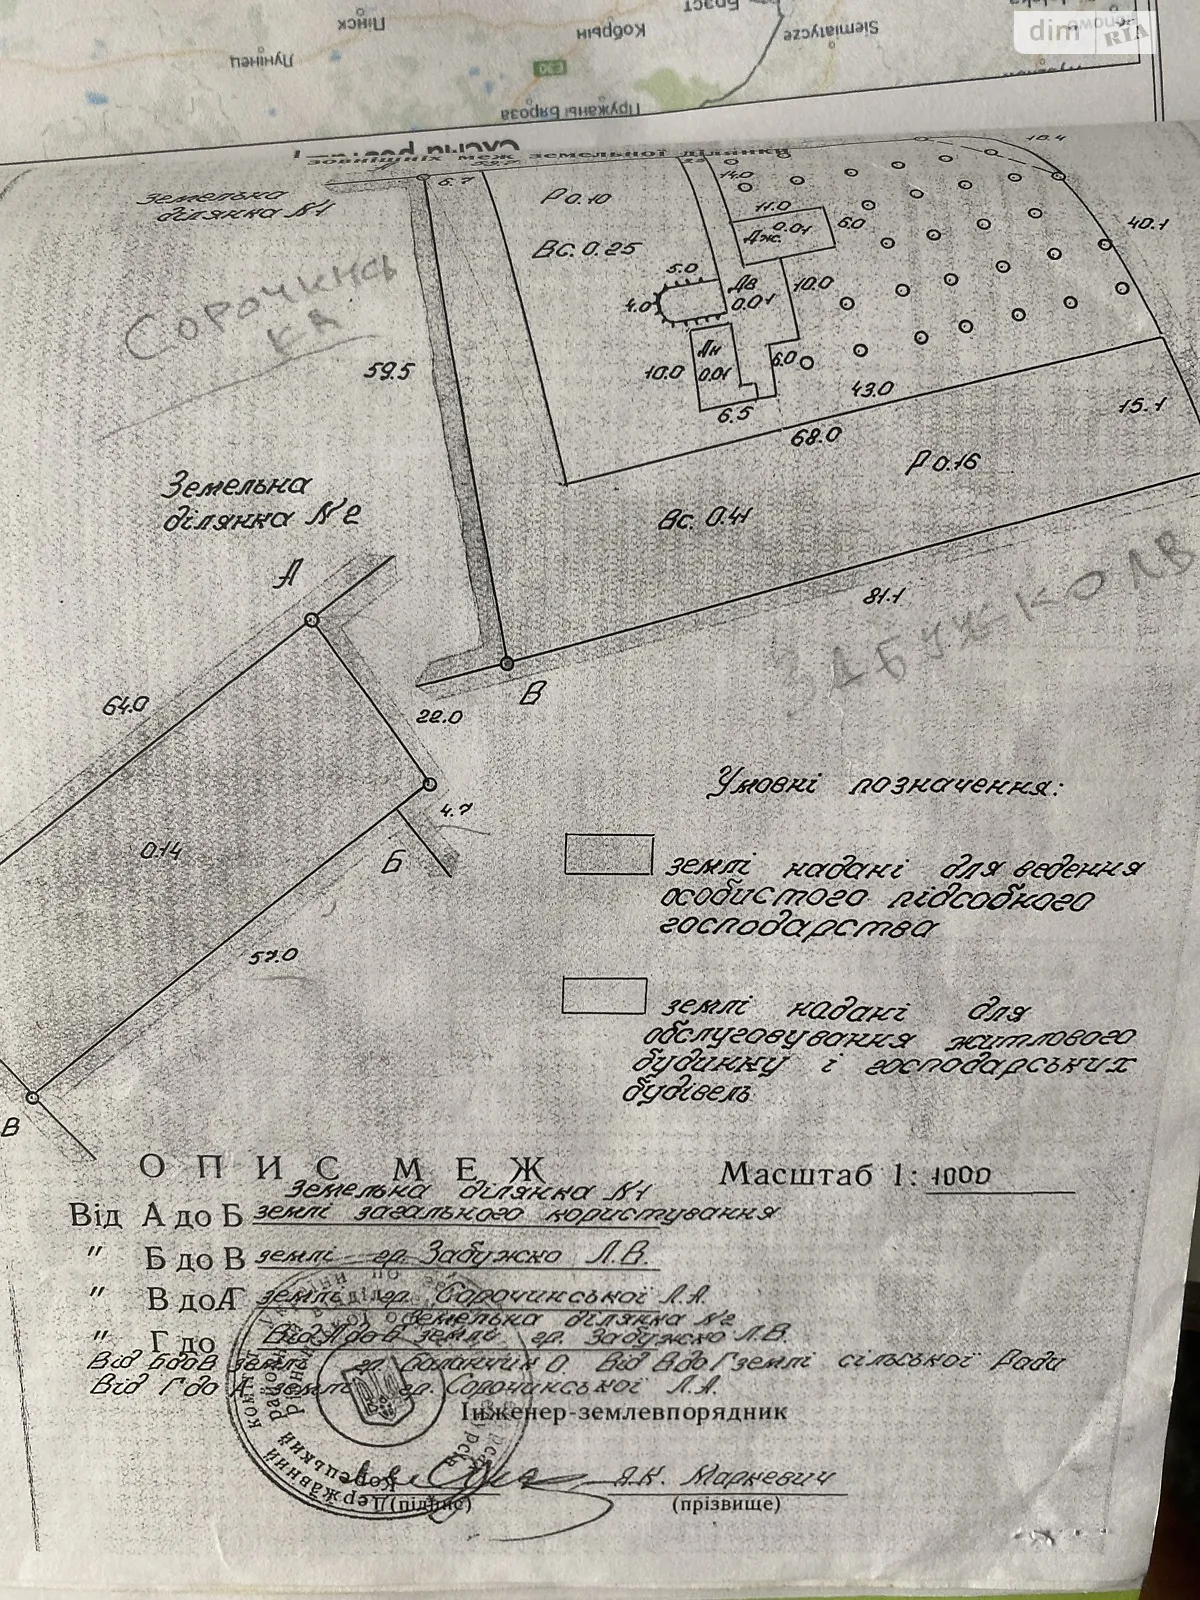 dim
RIA
Пінск
Кобрын
Siemiatycze
Лунінец
E30
Пружаны
Бяроза
зовнішніх меж земельної ділянки
Земельна
ділянка №1
6.7
Р 0.10
14.0
10.4
11.0
0.01
Дж.
6.0
40.1
Вс. 0.25
СОРОЧИНСЬ
КА
5.0
4.0
Дв
0.01
10.0
59.5
10.0
Дн
0.01
6.0
6.5
43.0
68.0
15.1
Р 0.16
Земельна
ділянка №2
Вс. 0.41
81.1
АБУЖКО Л В
А
В
64.0
22.0
4.7
Б
0.14
57.0
В
Умовні позначення:
землі надані для ведення
особистого підсобного
господарства
землі надані для
обслуговування житлового
будинку і господарських
будівель
ОПИС МЕЖ
Масштаб 1: 1000
Земельна ділянка №1
Від А до Б землі загального користування
" Б до В землі гр. Забужко Л.В.
" В до А землі гр. Сорочинської Л.А.
Земельна ділянка №2
" Г до Від А до Б землі гр. Забужко Л.В.
Від Б до В землі гр. Баланчик О. Від В до Г землі сільської Ради
Від Г до А землі гр. Сорочинської Л.А.
Інженер-землевпорядник
Державний
Корецький
(підпис)
Я.К. Маркевич
(прізвище)